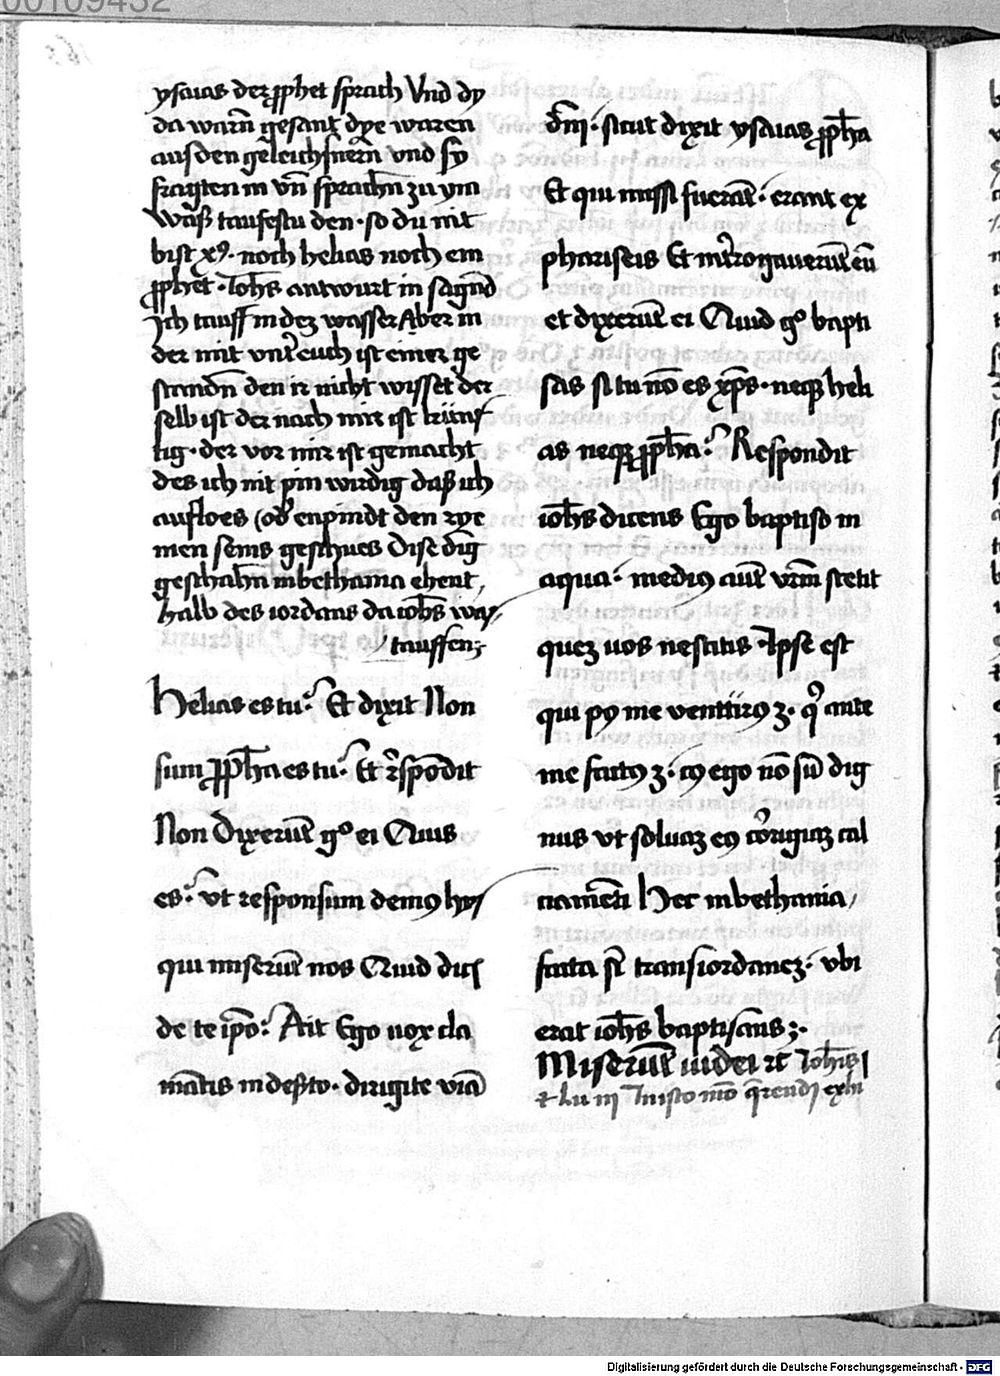 00109432
ysaias der ꝓphet sprach Vnd dy
da warn̄ gesant dye waren
aus den geleichsnern̄ vnd sy
fragten in vn̄ sprachn̄ zu ym
waß taufestu den · so du nit
bist xp̄s · noch helias noch ein
ꝓphet · Joh̄s antwurt in sagn̄d
Ich tauff in dez wasser Aber in
der mit vnt̄ euch ist einer ge
standn̄ den ir nicht wisset der
selb ist der nach mir ist künf
tig · der vor mir ist gemacht
des ich nit pin wirdig daß ich
aufloes (od̄ enpindt den rye
men seins geschues Dise dīg
geschahn̄ in bethania ehent
halb des iordans da ioh̄s was
tauffen
Helias es tu ? Et dixit Non
sum ꝓph̄a es tu ? Et r̄spōdit
Non Dixerūt gͦ ei Quis
es ? vt responsum demꝰ hys
qui miserūt nos Quid dicis
de te ip̄o ? Ait Ego uox cla
mātis in des̄to · dirigite viā
dn̄i · sicut dixit ysaias ꝓph̄a
Et qui missi fuerāt · erant ex
phariseis Et int̄rogauerūt eū
et dixerūt ei Quid gͦ bapti
sas si tu nō es xp̄s · neqꝫ heli
as neqꝫ ꝓph̄a ? Respondit
ioh̄s dicens Ego baptiso in
aqua · mediꝰ aūt vrm̄ stetit
quez uos nescitis Ipse est
qui pꝰ me venturꝰ ꝫ · q̄ ante
me factꝰ ꝫ · cꝰ ego nō sū dig
nus vt soluaz eꝰ cōrigiaz cal
ciamēti Hec in bethania
facta sūt trans iordanez · vbi
erat ioh̄s baptisans ·
Miserūt iudei rc̄ Joh̄is